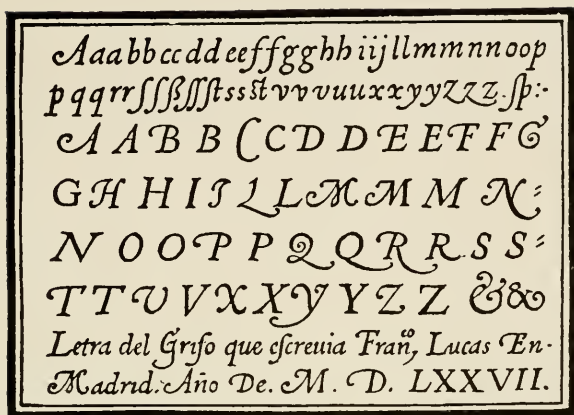 Aaabbccddeeffgghhiijllmmnnoop
pqqrrſſſßſſſtssstvvvuuxxyyzzz.ſp:-
A A B B C C D D E E F F G
G H H I I L L M M M N:
N O O P P Q Q R R. S S:
T T V V X X Y Y Z Z & &
Letra del Griſo que eſcreuia Franͦ, Lucas En-
Madrid. Año De. M. D. LXXVII.